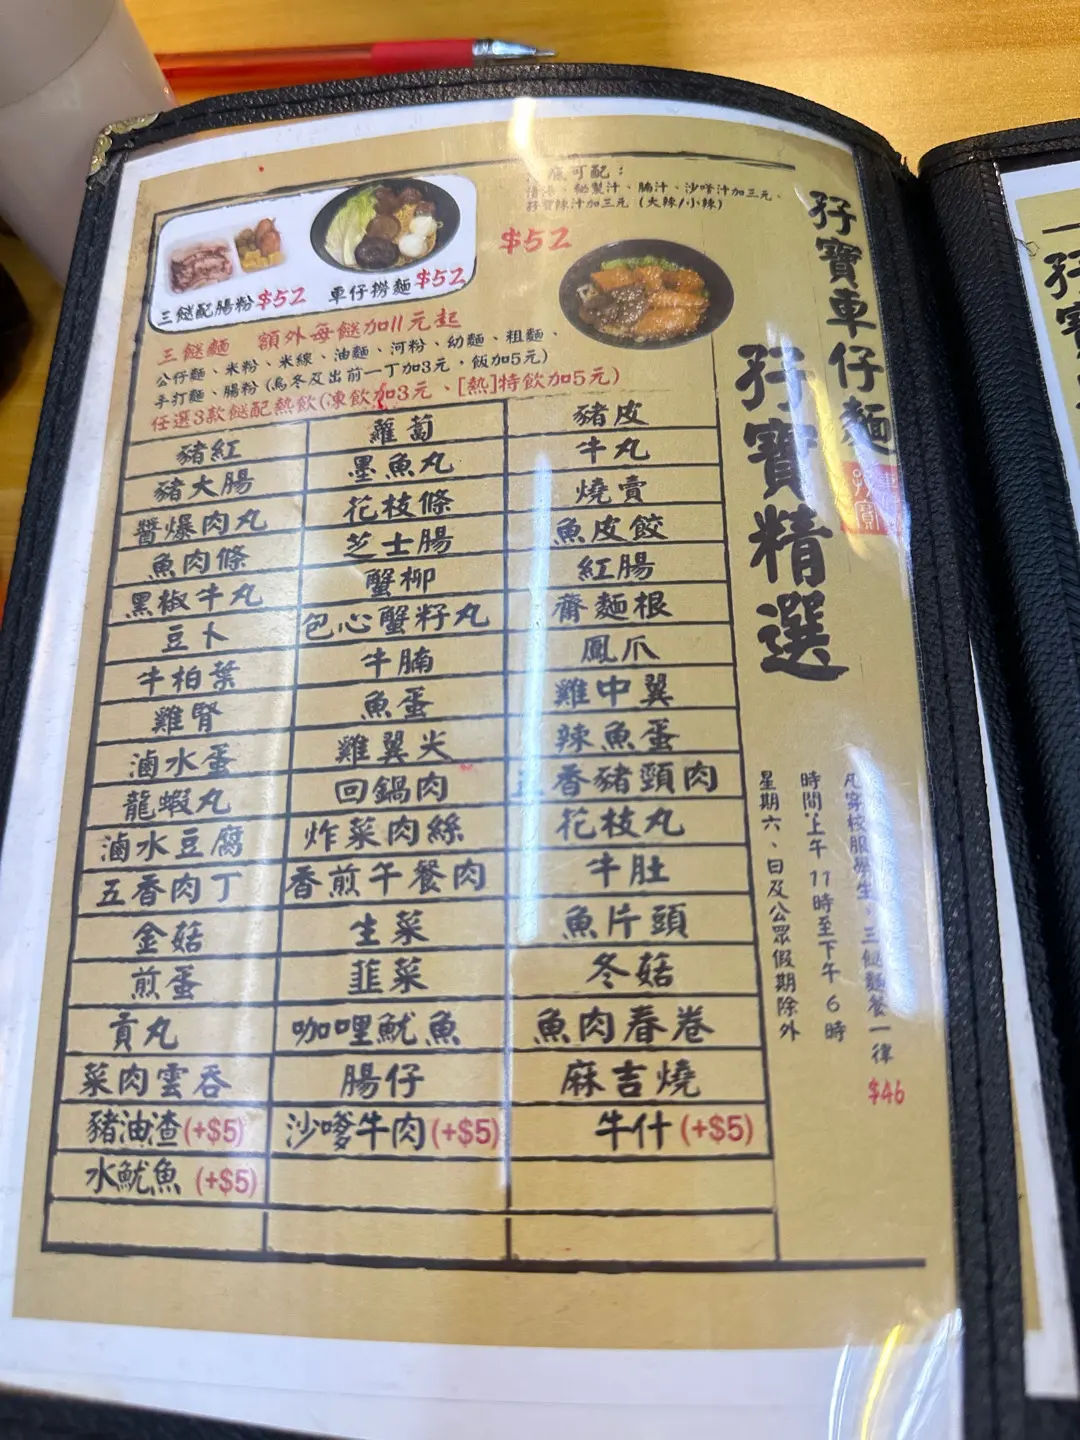 孖寶車仔麵
孖寶精選
可配：
秘製汁、腩汁、沙嗲汁加三元、
孖寶辣汁加三元（大辣/小辣）
$52
三餸配腸粉$52
車仔撈麵$52
三餸麵 額外每餸加11元起
公仔麵、米粉、米線、油麵、河粉、幼麵、粗麵、
手打麵、腸粉(烏冬及出前一丁加3元，飯加5元)
任選3款餸配熱飲(凍飲加3元、[熱]特飲加5元)
豬紅 蘿蔔 豬皮
豬大腸 墨魚丸 牛丸
醬爆肉丸 花枝條 燒賣
魚肉條 芝士腸 魚皮餃
黑椒牛丸 蟹柳 紅腸
豆卜 包心蟹籽丸 齋麵根
牛柏葉 牛腩 鳳爪
雞腎 魚蛋 雞中翼
滷水蛋 雞翼尖 辣魚蛋
龍蝦丸 回鍋肉 五香豬頸肉
滷水豆腐 炸菜肉絲 花枝丸
五香肉丁 香煎午餐肉 牛肚
金菇 生菜 魚片頭
煎蛋 韮菜 冬菇
貢丸 咖哩魷魚 魚肉春卷
菜肉雲吞 腸仔 麻吉燒
豬油渣(+$5) 沙嗲牛肉(+$5) 牛什(+$5)
水魷魚(+$5)
凡穿校服學生，三餸麵餐一律$46
時間:上午11時至下午6時
星期六、日及公眾假期除外